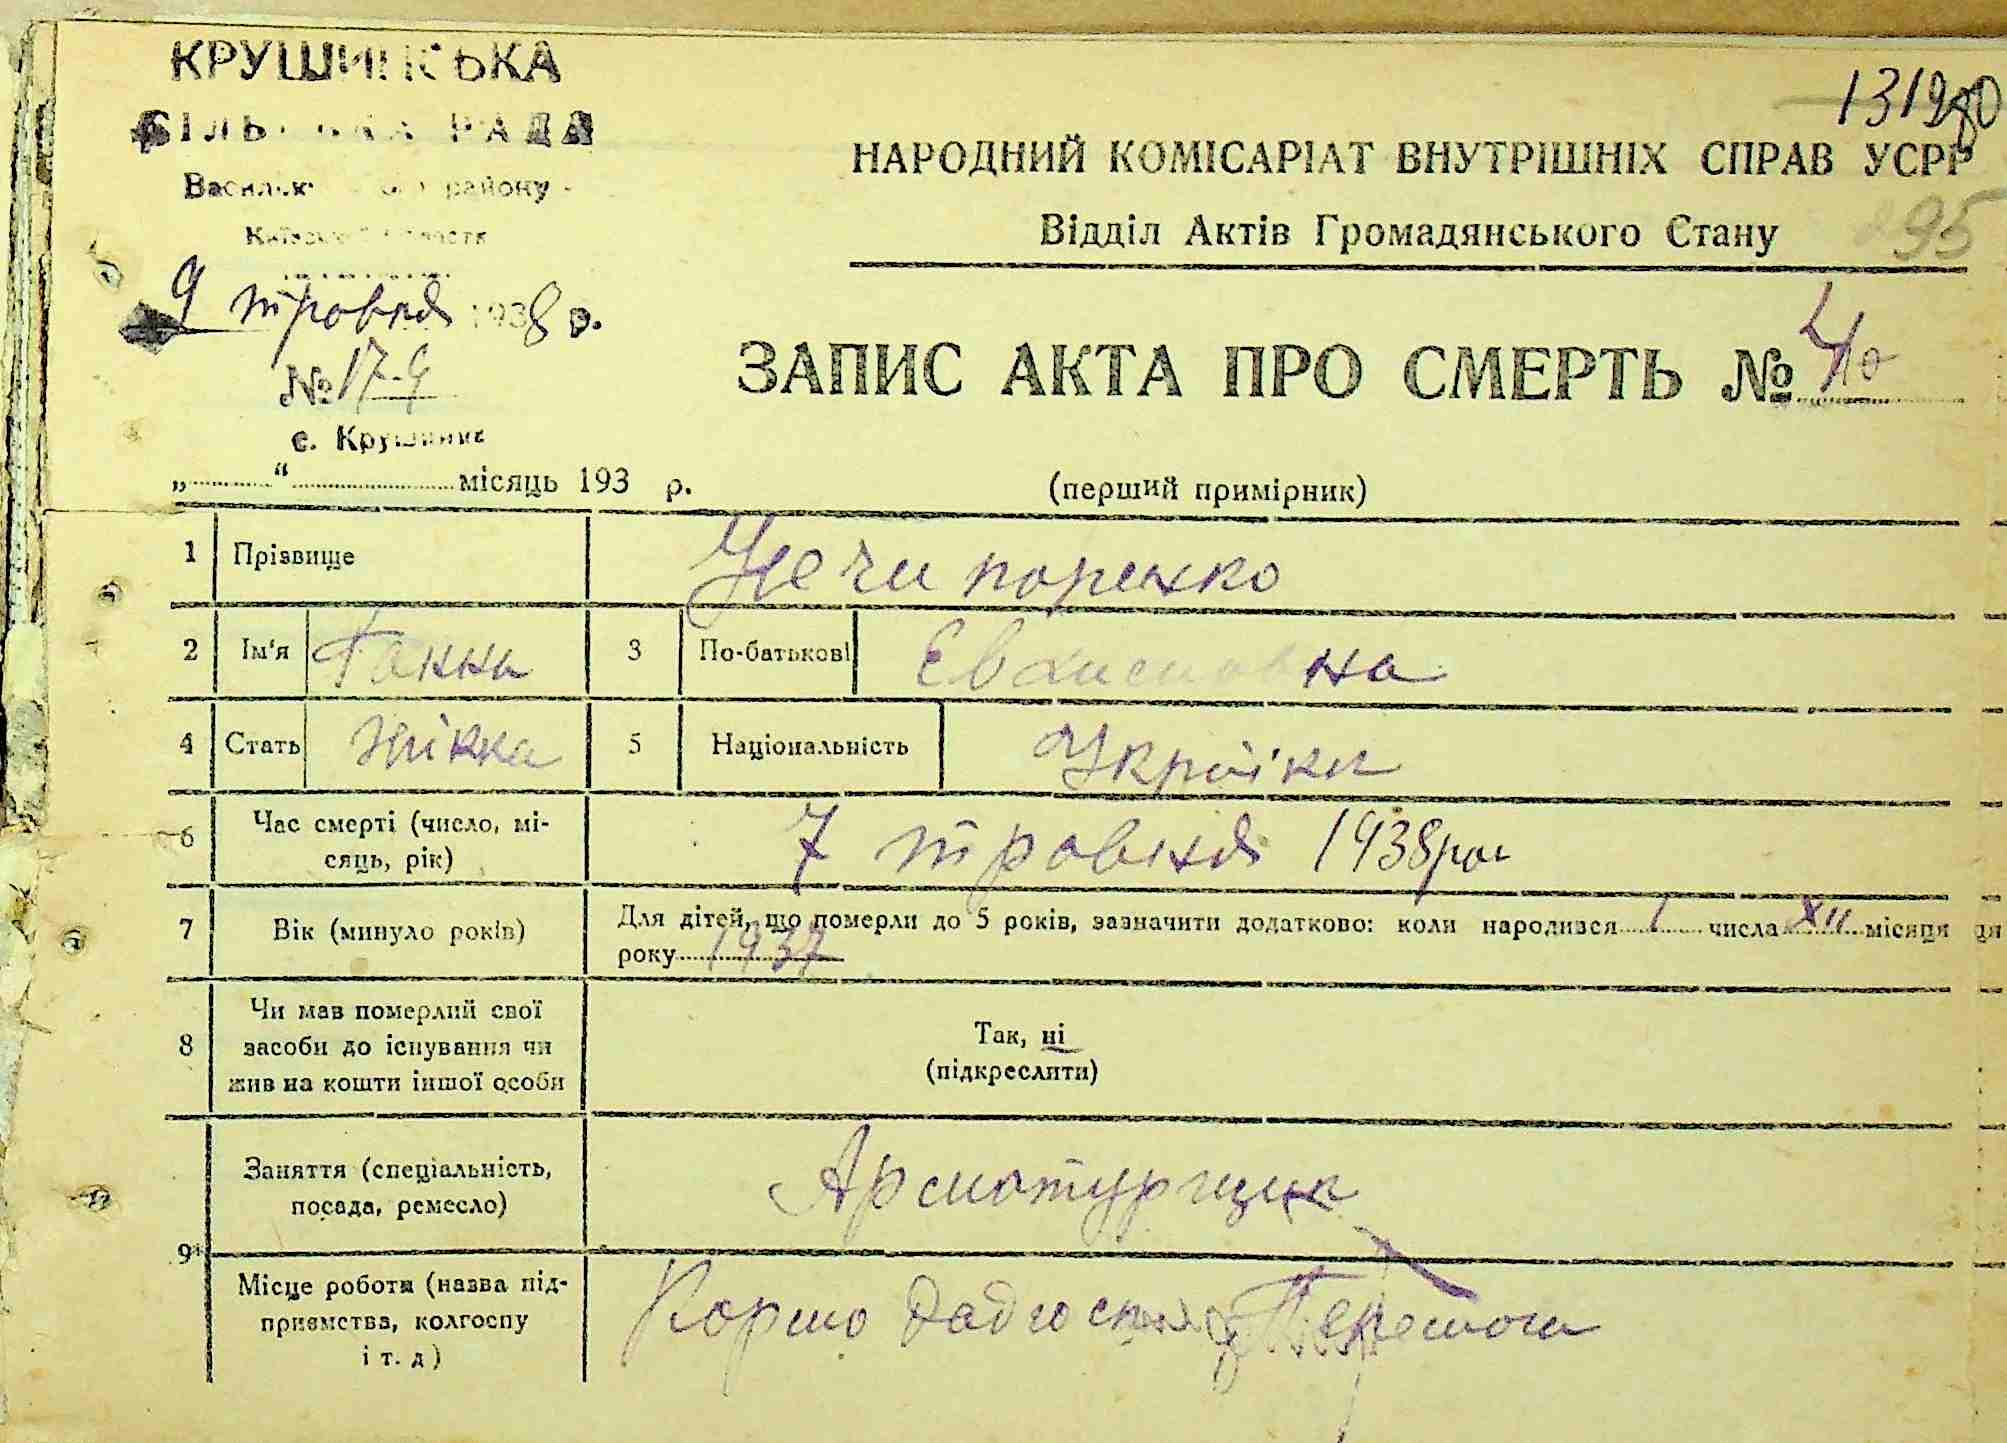 КРУШИНСЬКА
СІЛЬСЬКА РАДА
району
9 травня 1938 р.
№ 17-9
с. Крушинка
131280
НАРОДНИЙ КОМІСАРІАТ ВНУТРІШНІХ СПРАВ УСРР
Відділ Актів Громадянського Стану
95
ЗАПИС АКТА ПРО СМЕРТЬ №
„ “ місяць 193 р.
(перший примірник)
1 Прізвище Нечипоренко
2 Ім'я Ганна 3 По-батькові
4 Стать жінка 5 Національність Українка
6 Час смерті (число, мі-
сяць, рік) 7 травня 1938
7 Вік (минуло років) Для дітей, що померли до 5 років, зазначити додатково: коли народився 1 числа XII місяця
року 1937
8 Чи мав померлий свої
засоби до існування чи
жив на кошти іншої особи
Так, ні
(підкреслити)
9 Заняття (спеціальність,
посада, ремесло) Арматурщик
Місце роботи (назва під-
приємства, колгоспу
і т. д)